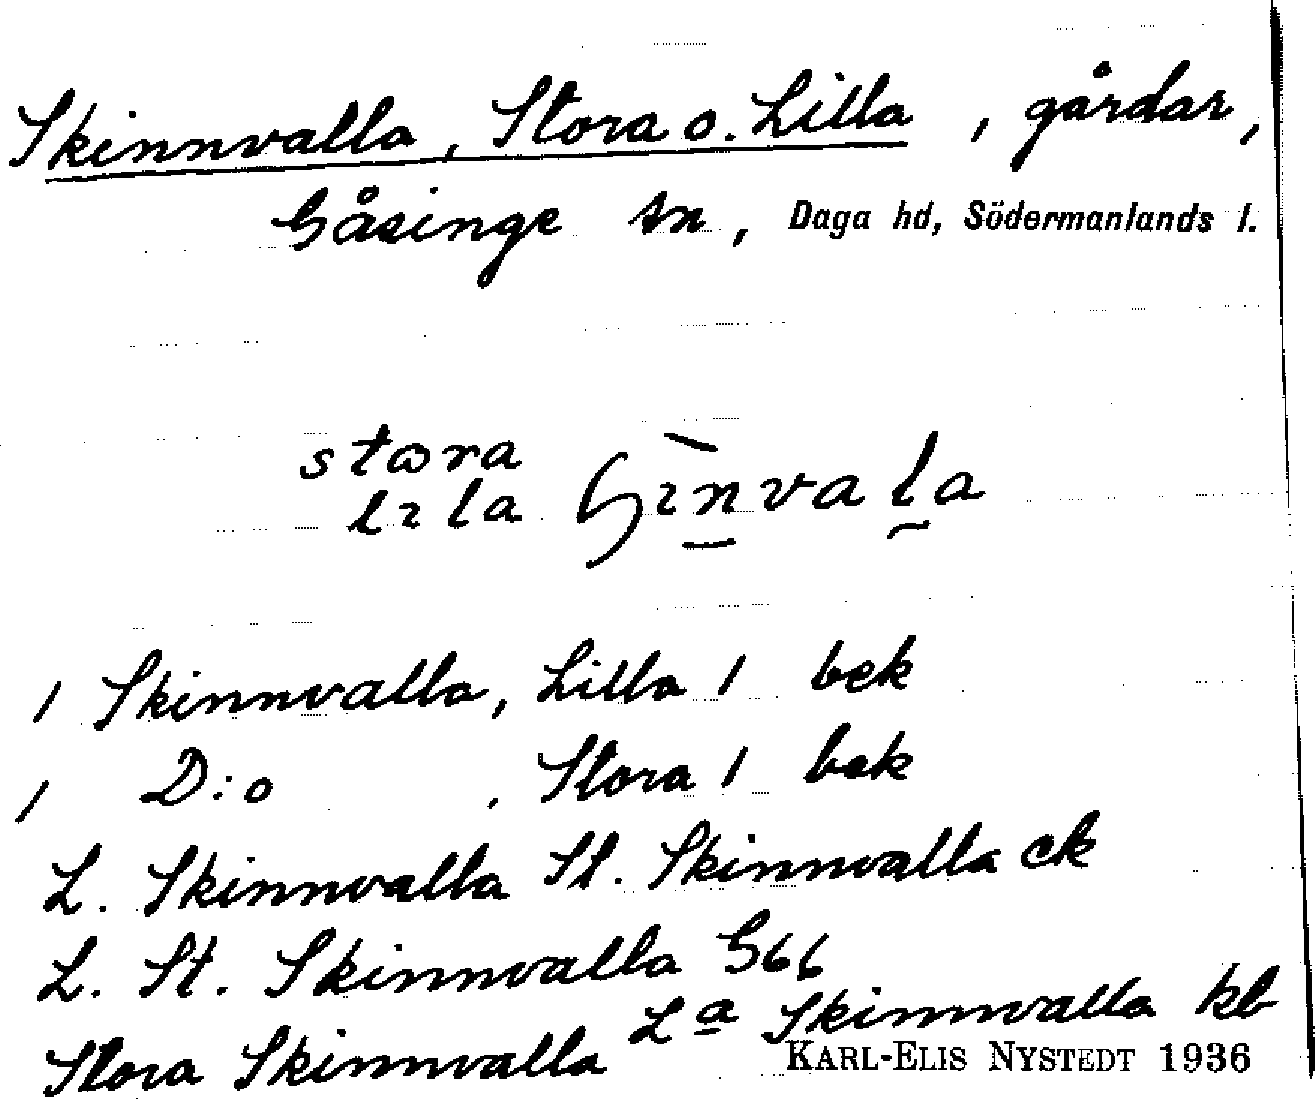 Skinnvalla, Stora o. Lilla, gårdar,
Gåsinge sn, Daga hd, Södermanlands l.
stɷra
lɪla ɧɪ̀nvala
1 Skinnvalla, Lilla 1 bek
1 D:o, Stora 1 bek
L. Skinnvalla St. Skinnvalla ek
L. St. Skinnvalla G66
Stora Skinnvalla Lª Skinnvalla kb
KARL-ELIS NYSTEDT 1936